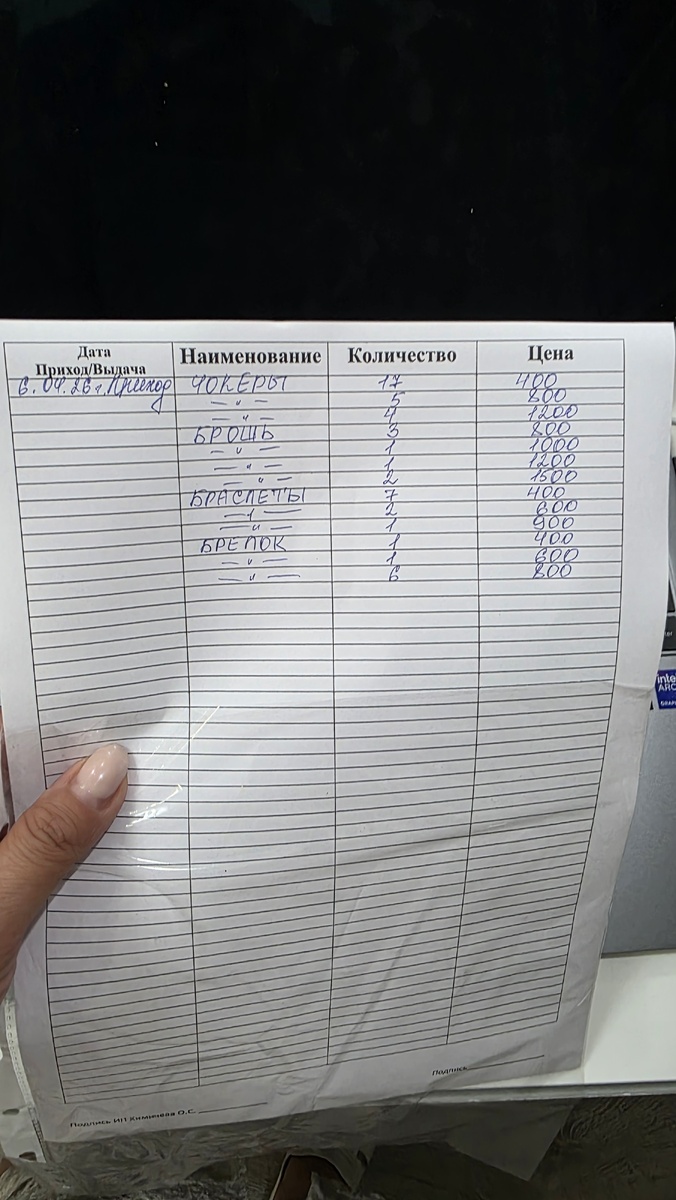 Дата
Приход/Выдача Наименование Количество Цена
6.04.26г. Приход ЧОКЕРЫ 17 400
— " — 5 800
— " — 4 1200
БРОШЬ 3 800
— " — 1 1000
— " — 1 1200
— " — 2 1500
БРАСЛЕТЫ 7 400
— " — 2 600
— " — 1 900
БРЕЛОК 1 400
— " — 1 600
— " — 6 800
Подпись
Подпись ИП Химичева О.С.
intel
ARC
GRAPH